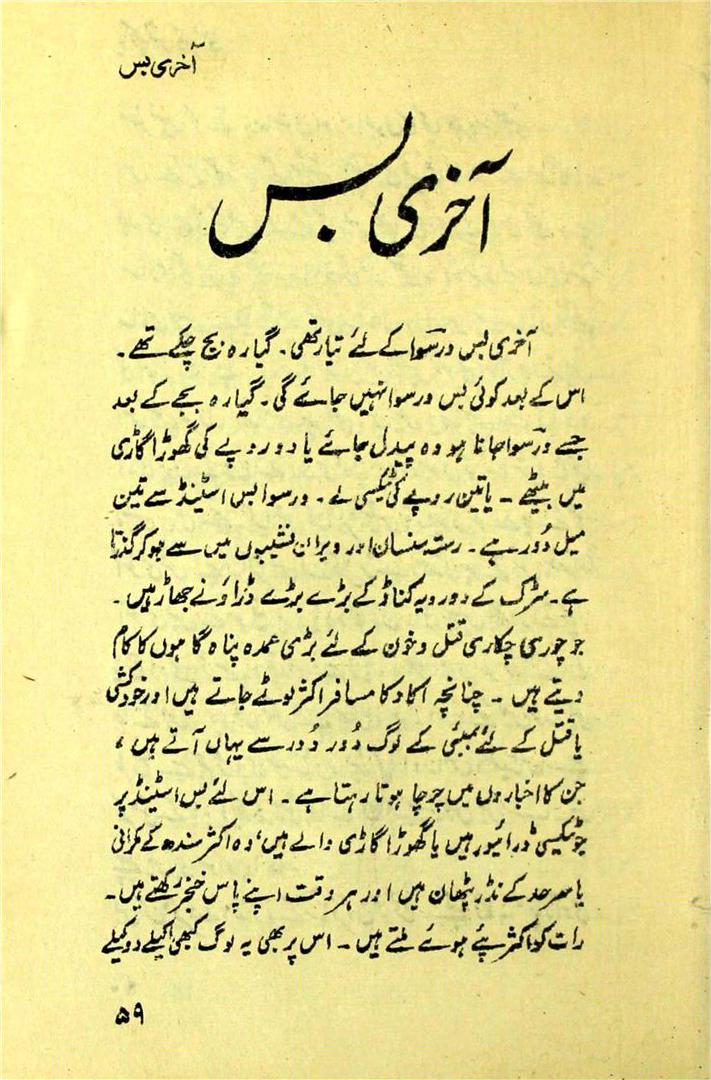 آخری بس
آخری بس
آخری بس ورسوا کے لئے تیار تھی۔ گیارہ بج چکے تھے۔
اس کے بعد کوئی بس ورسوا نہیں جائے گی۔ گیارہ بجے کے بعد
جسے ورسوا جانا ہو وہ پیدل جائے یا دو روپے کی گھوڑا گاڑی
میں بیٹھے۔ یا تین روپے کی ٹیکسی لے۔ ورسوا بس اسٹینڈ سے تین
میل دُور ہے۔ رستہ سنسان اور ویران نشیبوں میں سے ہو کر گذرتا
ہے۔ سڑک کے دو رویہ کناڈ کے بڑے بڑے ڈراؤنے جھاڑ ہیں۔
جو چوری چکاری قتل و خون کے لئے بڑی عمدہ پناہ گاہوں کا کام
دیتے ہیں۔ چنانچہ اکا دکا مسافر اکثر لوٹے جاتے ہیں اور خودکشی
یا قتل کے لئے بمبئی کے لوگ دُور دُور سے یہاں آتے ہیں،
جن کا اخباروں میں چرچا ہوتا رہتا ہے۔ اس لئے بس اسٹینڈ پر
جو ٹیکسی ڈرائیور ہیں یا گھوڑا گاڑی والے ہیں، وہ اکثر سندھ کے مکرانی
یا سرحد کے نڈر پٹھان ہیں اور ہر وقت اپنے پاس خنجر رکھتے ہیں۔
رات کو اکثر پئے ہوئے ملتے ہیں۔ اس پر بھی یہ لوگ کبھی اکیلے دوکیلے
۵۹